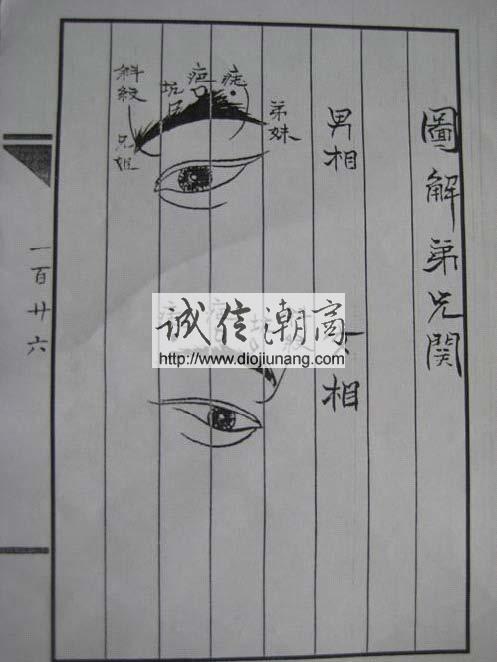 圖解弟兄関
男相
弟妹
痣
疤
坑
斜紋
兄姐
相
诚信潮商
http://www.diojiunang.com
一百廿六